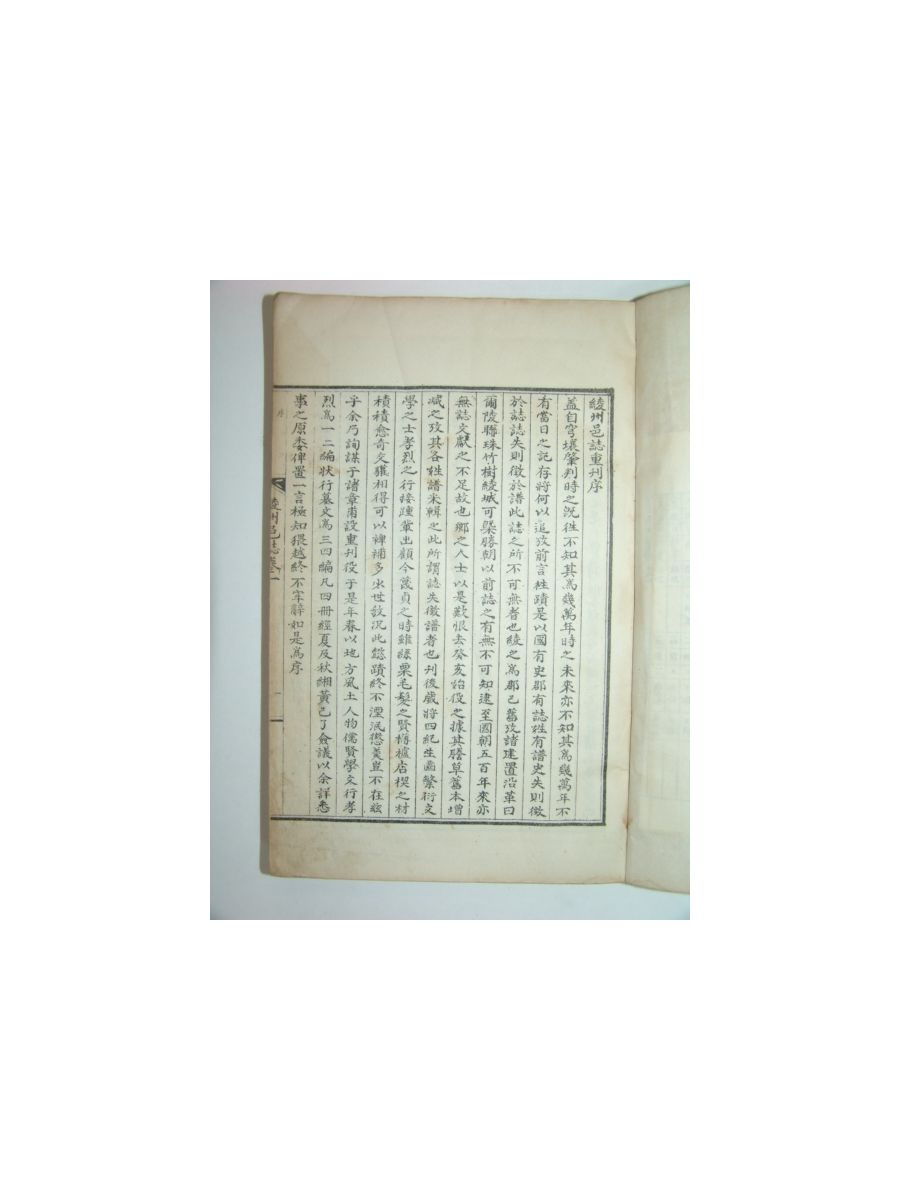 綾州邑誌重刊序
盖自穹壤肇判時之旣徃不知其爲幾萬年時之未來亦不知其爲幾萬年不
有當日之記存將何以追攷前言徃蹟是以國有史郡有誌姓有譜史失則徵
於誌誌失則徵於譜此誌之所不可無者也綾之爲郡已舊攷諸建置沿革曰
爾陵聯珠竹樹綾城可槩勝朝以前誌之有無不可知逮至國朝五百年來亦
無誌文獻之不足故也鄕之人士以是歎恨去癸亥始役之據其謄草舊本增
减之攷其各姓譜釆輯之此所謂誌失徵譜者也刊後歲將四紀生齒繁衍文
學之士孝烈之行接踵輩出顧今蔑貞之時雖絲粟毛髮之賢樽櫨店楔之材
積積愈奇文獻相得可以裨補多少世敎况此懿蹟終不湮泯懲羙豈不在玆
乎余乃詢謀于諸章甫設重刊役于是年春以地方風土人物儒賢學文行孝
烈爲一二編狀行墓文爲三四編凡四冊經夏及秋緗黃已了僉議以余詳悉
事之原委俾置一言極知猥越終不牢辭如是爲序
序
綾州邑誌卷一
一